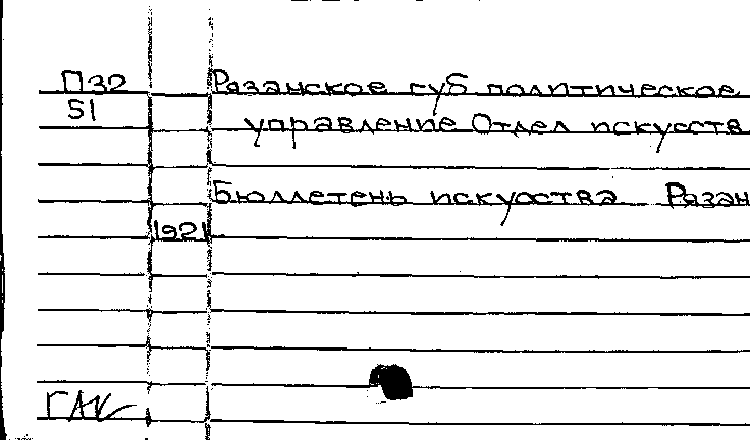 П32 Рязанское губ политическое
51 управление Отдел искусств
Бюллетень искусства Рязан
1921
ГАК